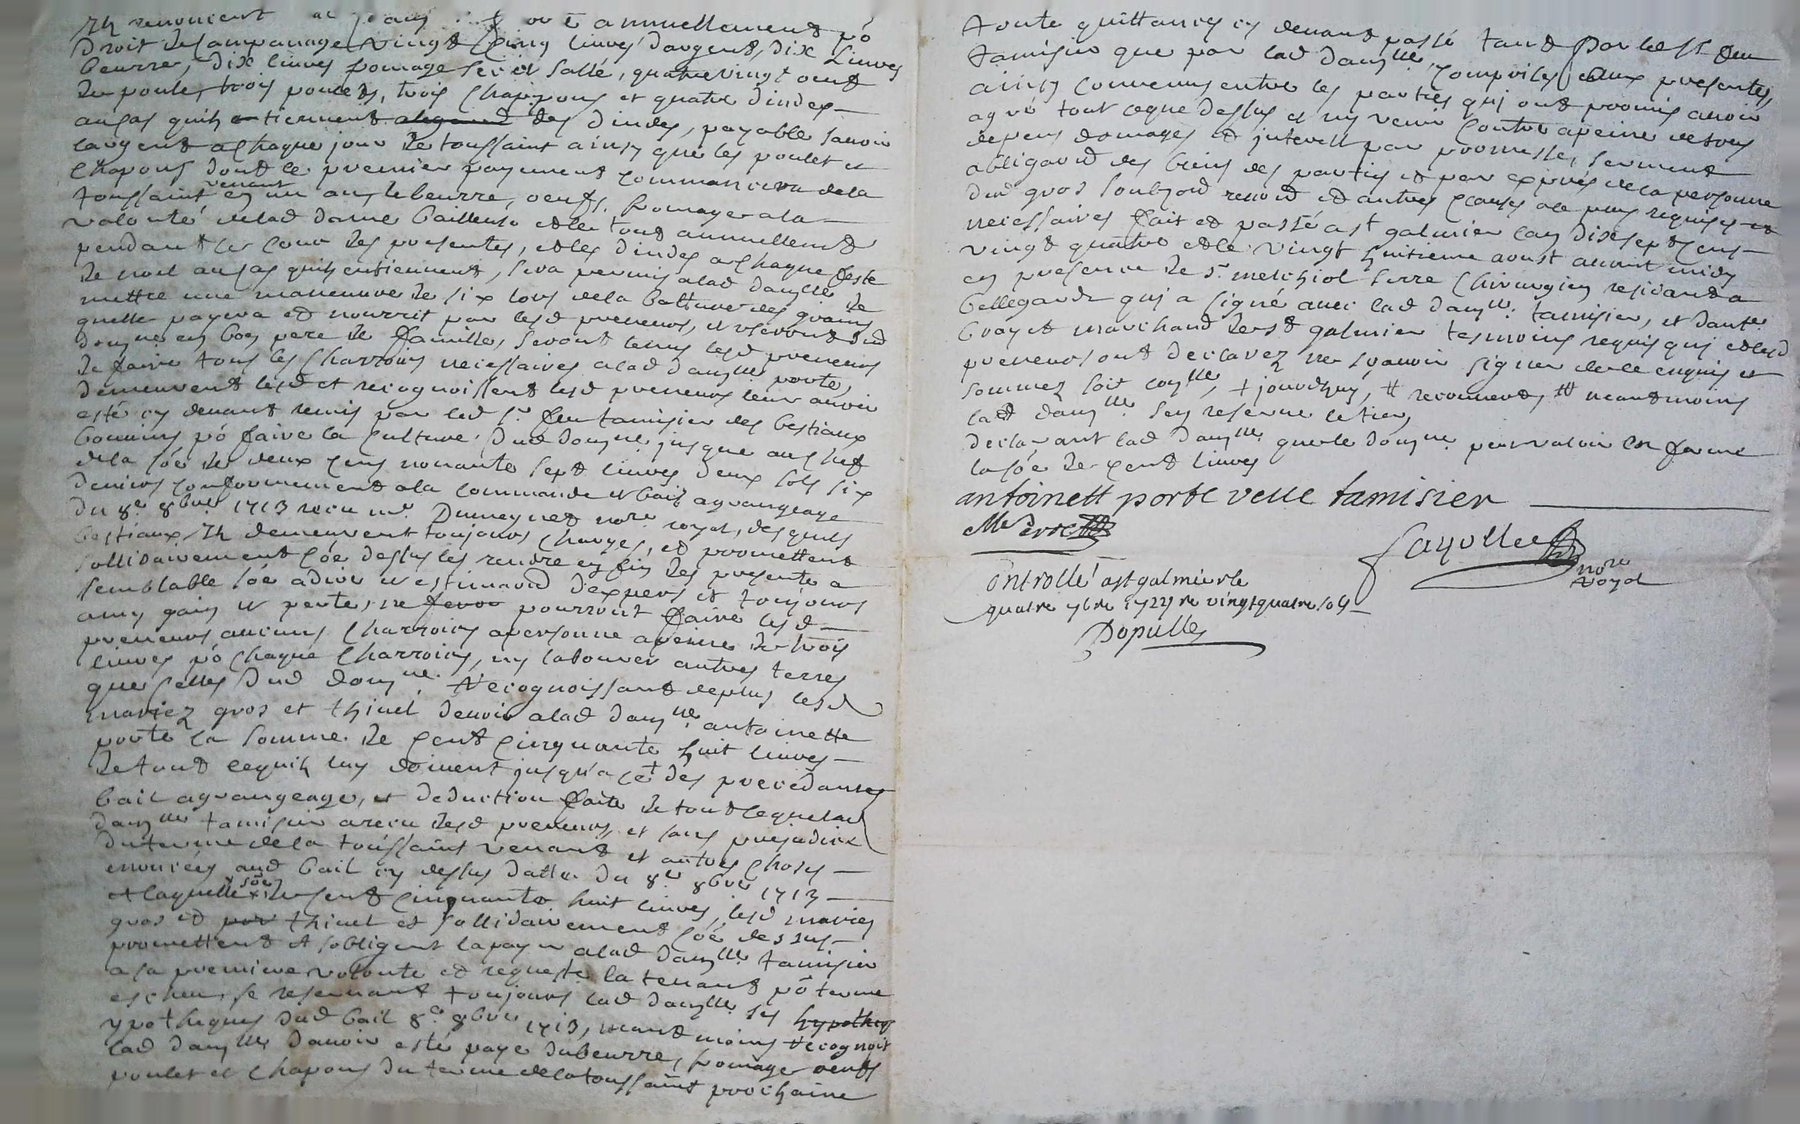 annuellement po
Droit de Campanage vingt cinq livres dargent, dix livres
beurre, dix livres fromage sec et sallé, quatrevingt oeufs
de poule, trois poulets, trois chappons et quatre dindes
au cas quilz en tiennent des dindes, payable savoir
largent a chaque jour de toussaint ainsy que les poulet et
chapons dont le premier payement commancera de la
toussaint venant en un an, le beurre, oeufs, fromage a la
volonté de lad dame bailleuse et le tout annuellement
pendant le cour des presentes, et les dindes a chaque feste
de noel au cas quilz en tiennent, sera permis a lad daniselle de
mettre une maneuvre de six lors de la batture des grains
quelle payera et nourrit par lesd preneurs, et usèront dud
domne en bon pere de famille, seront tenus lesd preneurs
de faire tous les charrois necessaires a lad damlle porte,
demeurent lesd et recognoissent lesd preneurs leur avoir
esté cy devant remis par led sr feu tamisier des bestiaux
bouvins po faire la culture dud domne jusque au chef
de la soe de deux cens nonante sept livres deux sols six
deniers conformement a la commande et bail a grangeage
du 8e 8bre 1713 receu me Dumeynet nore royal, desquels
bestiaux ilz demeurent toujours chargés, et promettent
sollidairement coe dessus les rendre en fin des presente a
semblable soe a dire et estimaon d'expers et toujours
a my gain et perte, ne pourront faire lesd
preneurs aucuns charroirs a personne a peine de trois
livres po chaque charroirs, ny labourer autres terres
que celles dud domne. Recognoissant de plus lesd
mariez gros et thivel devoir a lad damlle antoinette
porte la somme de cent cinquante huit livres
de tout ce quilz luy doivent jusqu'a cet des precedantes
bail a grangeage, et deduction faite de tout ce que lad
damlle tamisier a receu desd preneurs et sans prejudice
du terme de la toussaint venant et autres choses
enoncées aud bail cy dessus datté du 8e 8bre 1713
et laquelle soe de cent cinquante huit livres, lesd mariez
gros et thivel et sollidairement coe dessus
promettent et sobligent la payer a lad damlle tamisier
a sa premiere volonté et requeste la tenant po terme
escheu, se reservant toujours lad damlle ses
ypotheques dud bail 8e 8bre 1713, neantmoins recognoit
lad damlle davoir esté payé du beurre, fromage oeufs
poulet et chapons du terme de la toussaint prochaine
toute quittances cy devant passé tant par led sr feu
tamisier que par lad damlle comprises aux presentes,
ainsy convenus entre les parties qui ont promis avoir
agré tout ce que dessus et ny venir contre a peine de tous
depens domages et interest par promesse, serment
obligaon des biens des parties et par exprés de la personne
dud gros soubzon renoon et autres clauses a ce plus requises
necessaires fait et passé a st galmier lan dix sept cens
vingt quatre et le vingt huitieme aoust avant midy
en presence de sr melchiol serre chirurgien residant a
bellegarde qui a signé avec lad damlle tamisier, et dante
boayet marchand de st galmier tesmoins requis qui et lesd
preneurs ont declarez ne scavoir signer de ce enquis et
sommez
lad damlle sen reserve le tier,
declarant lad damlle que le domne peu valoir en ferme
la soe de cent livres
antoinett porte veve tamisier
Mr serre
fayolle
nore
royal
Controllé a st galmier le
quatre 7bre 1724 re vingtquatre sols
Dopulles